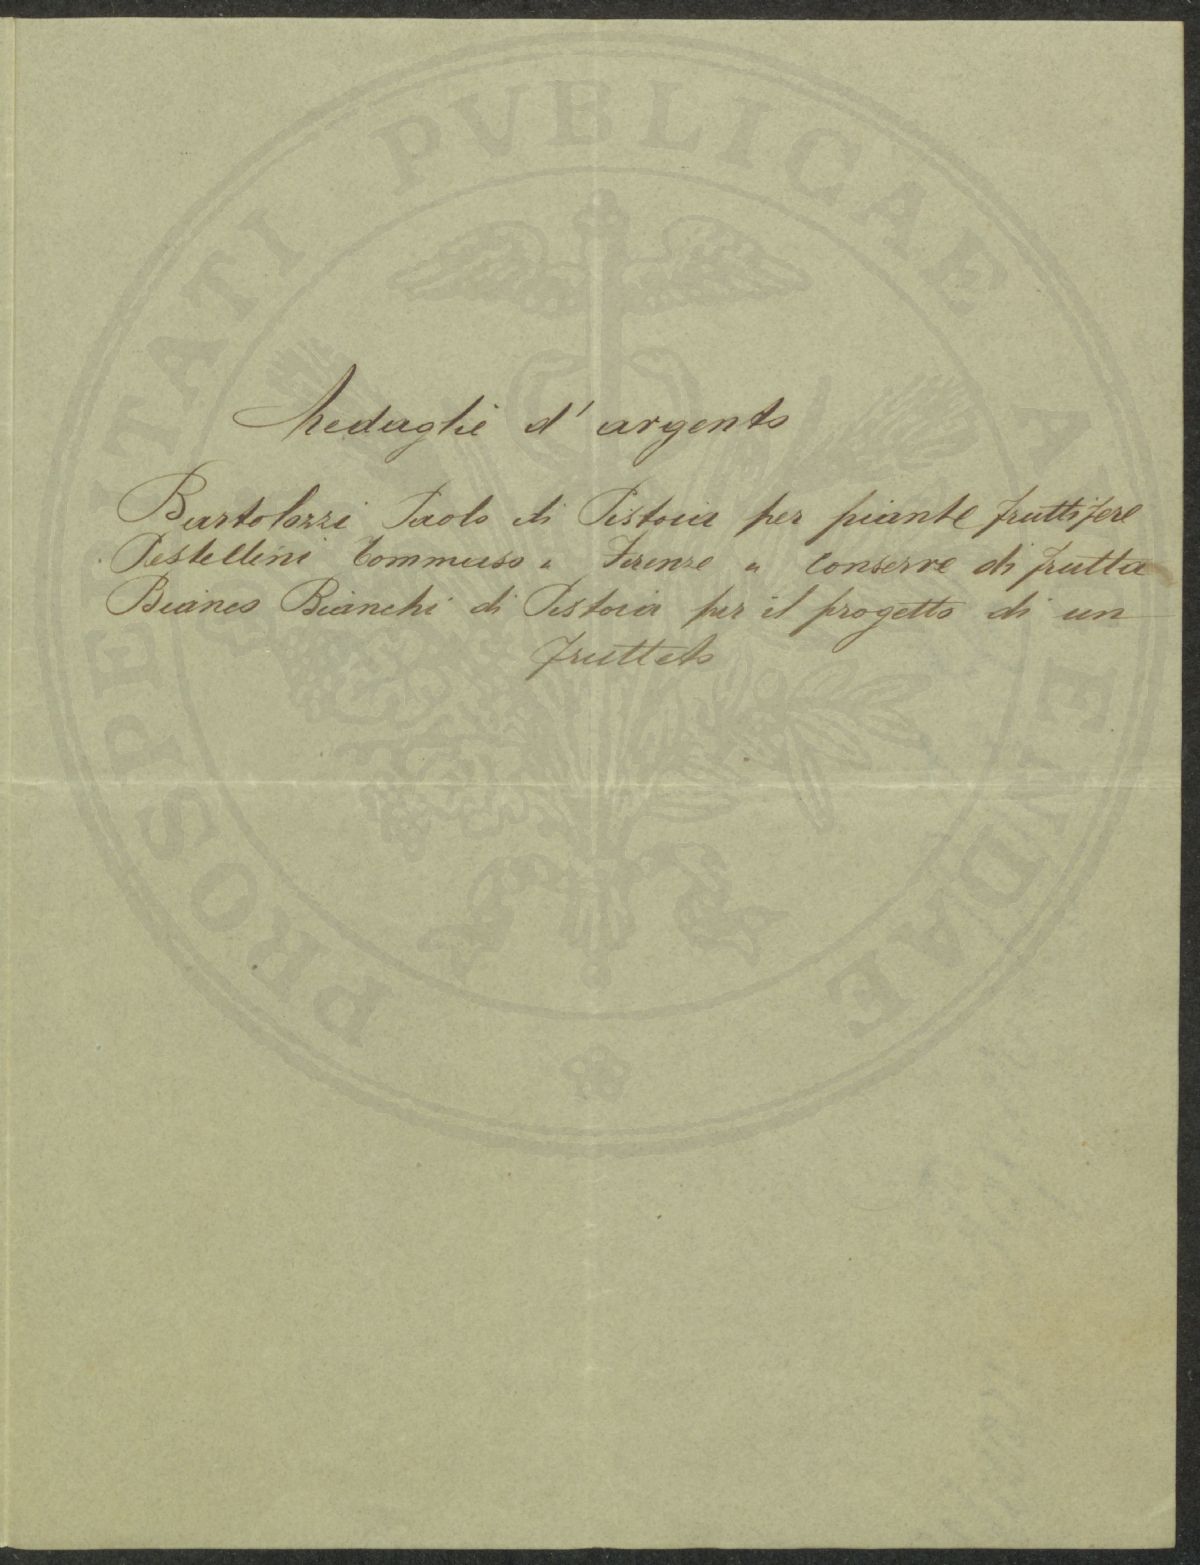 PROSPERITATI PVBLICAE AVGENDAE
Medaglie d'argento
Bartolozzi Paolo di Pistoia per piante fruttifere
Pestellini Tommaso " Firenze " Conserve di frutta
Bianco Bianchi di Pistoia per il progetto di un
frutteto